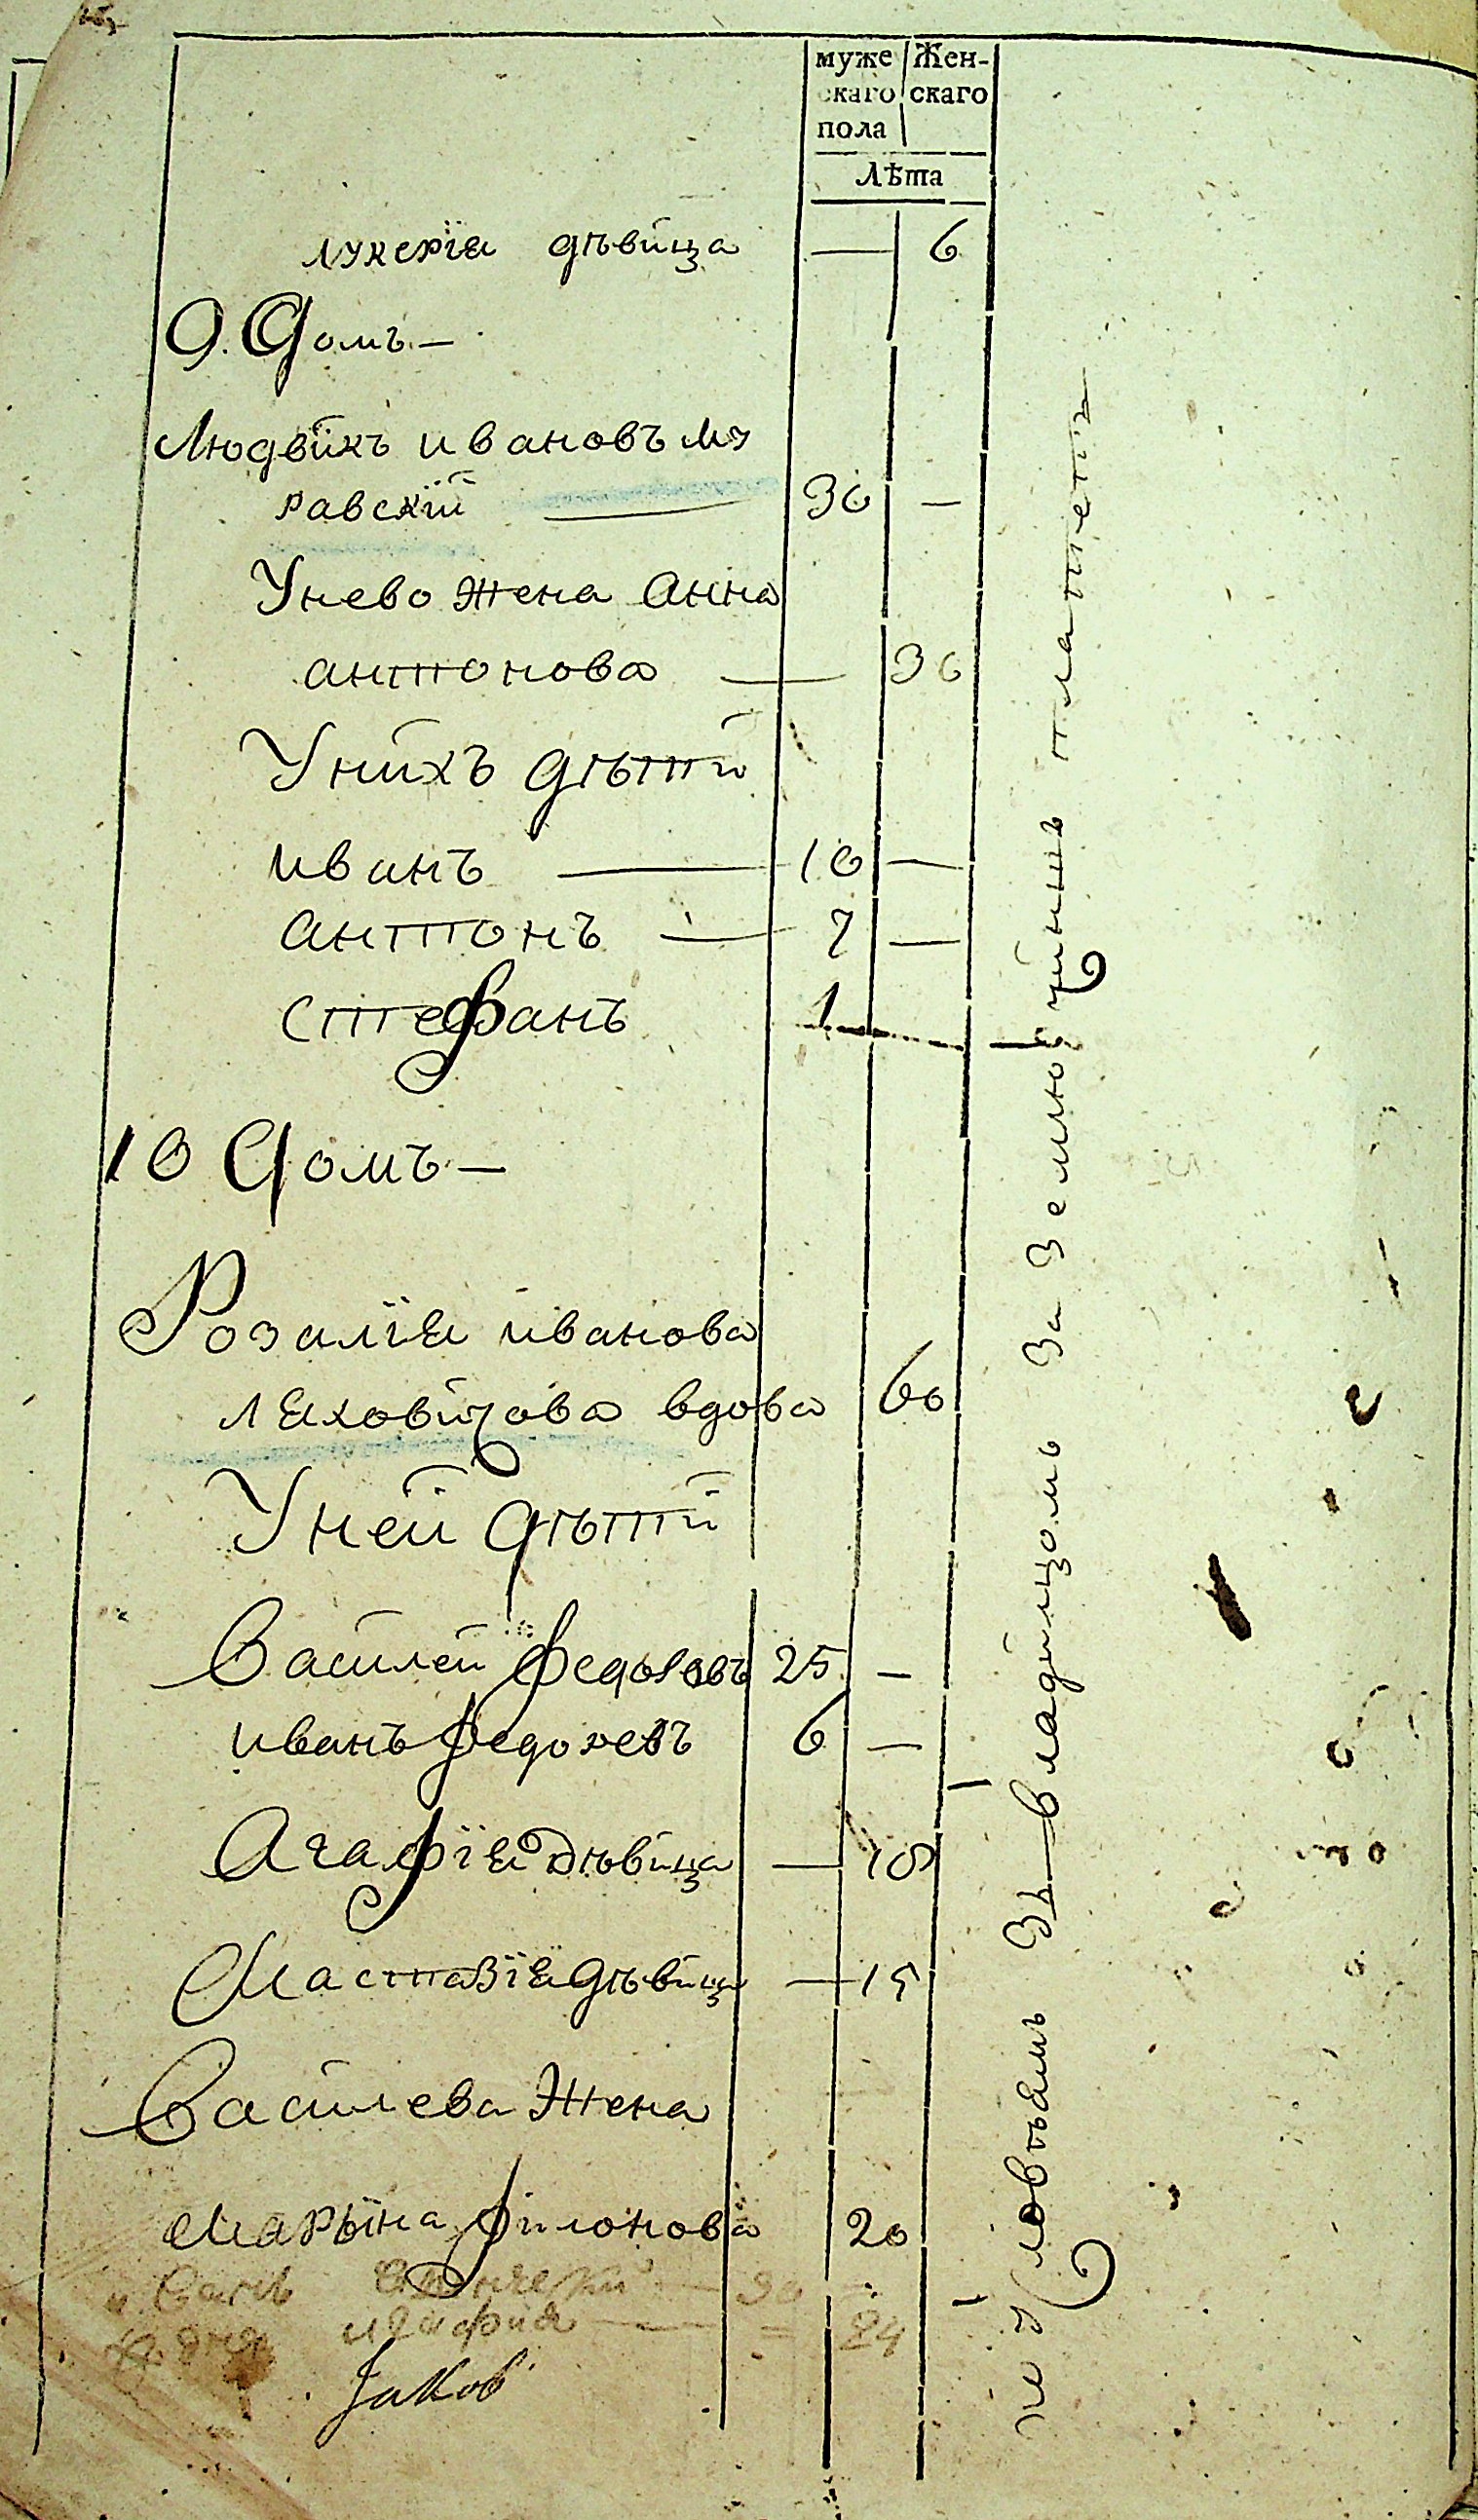 муже Жен-
скаго скаго
пола
Лѣта
лукерїя дѣвица — 6
9. Домъ —
Людвикъ ивановъ му
равскїй — 30 —
Унево жена анна
антонова — 30
Унихъ дѣти
иванъ — 10 —
антонъ — 7 —
стефанъ 1 —
10 Домъ —
Розалїя иванова
ляховичова вдова 60
Уней дѣти
Василей федоровъ 25 —
иванъ федоровъ 6 —
Агафїя дѣвица — 18
Настазїя дѣвица — 15
Василева жена
Марына филонова 20
30
24
Jakob
по условѣямъ зъ владѣлцомъ за землю чиншъ платетъ